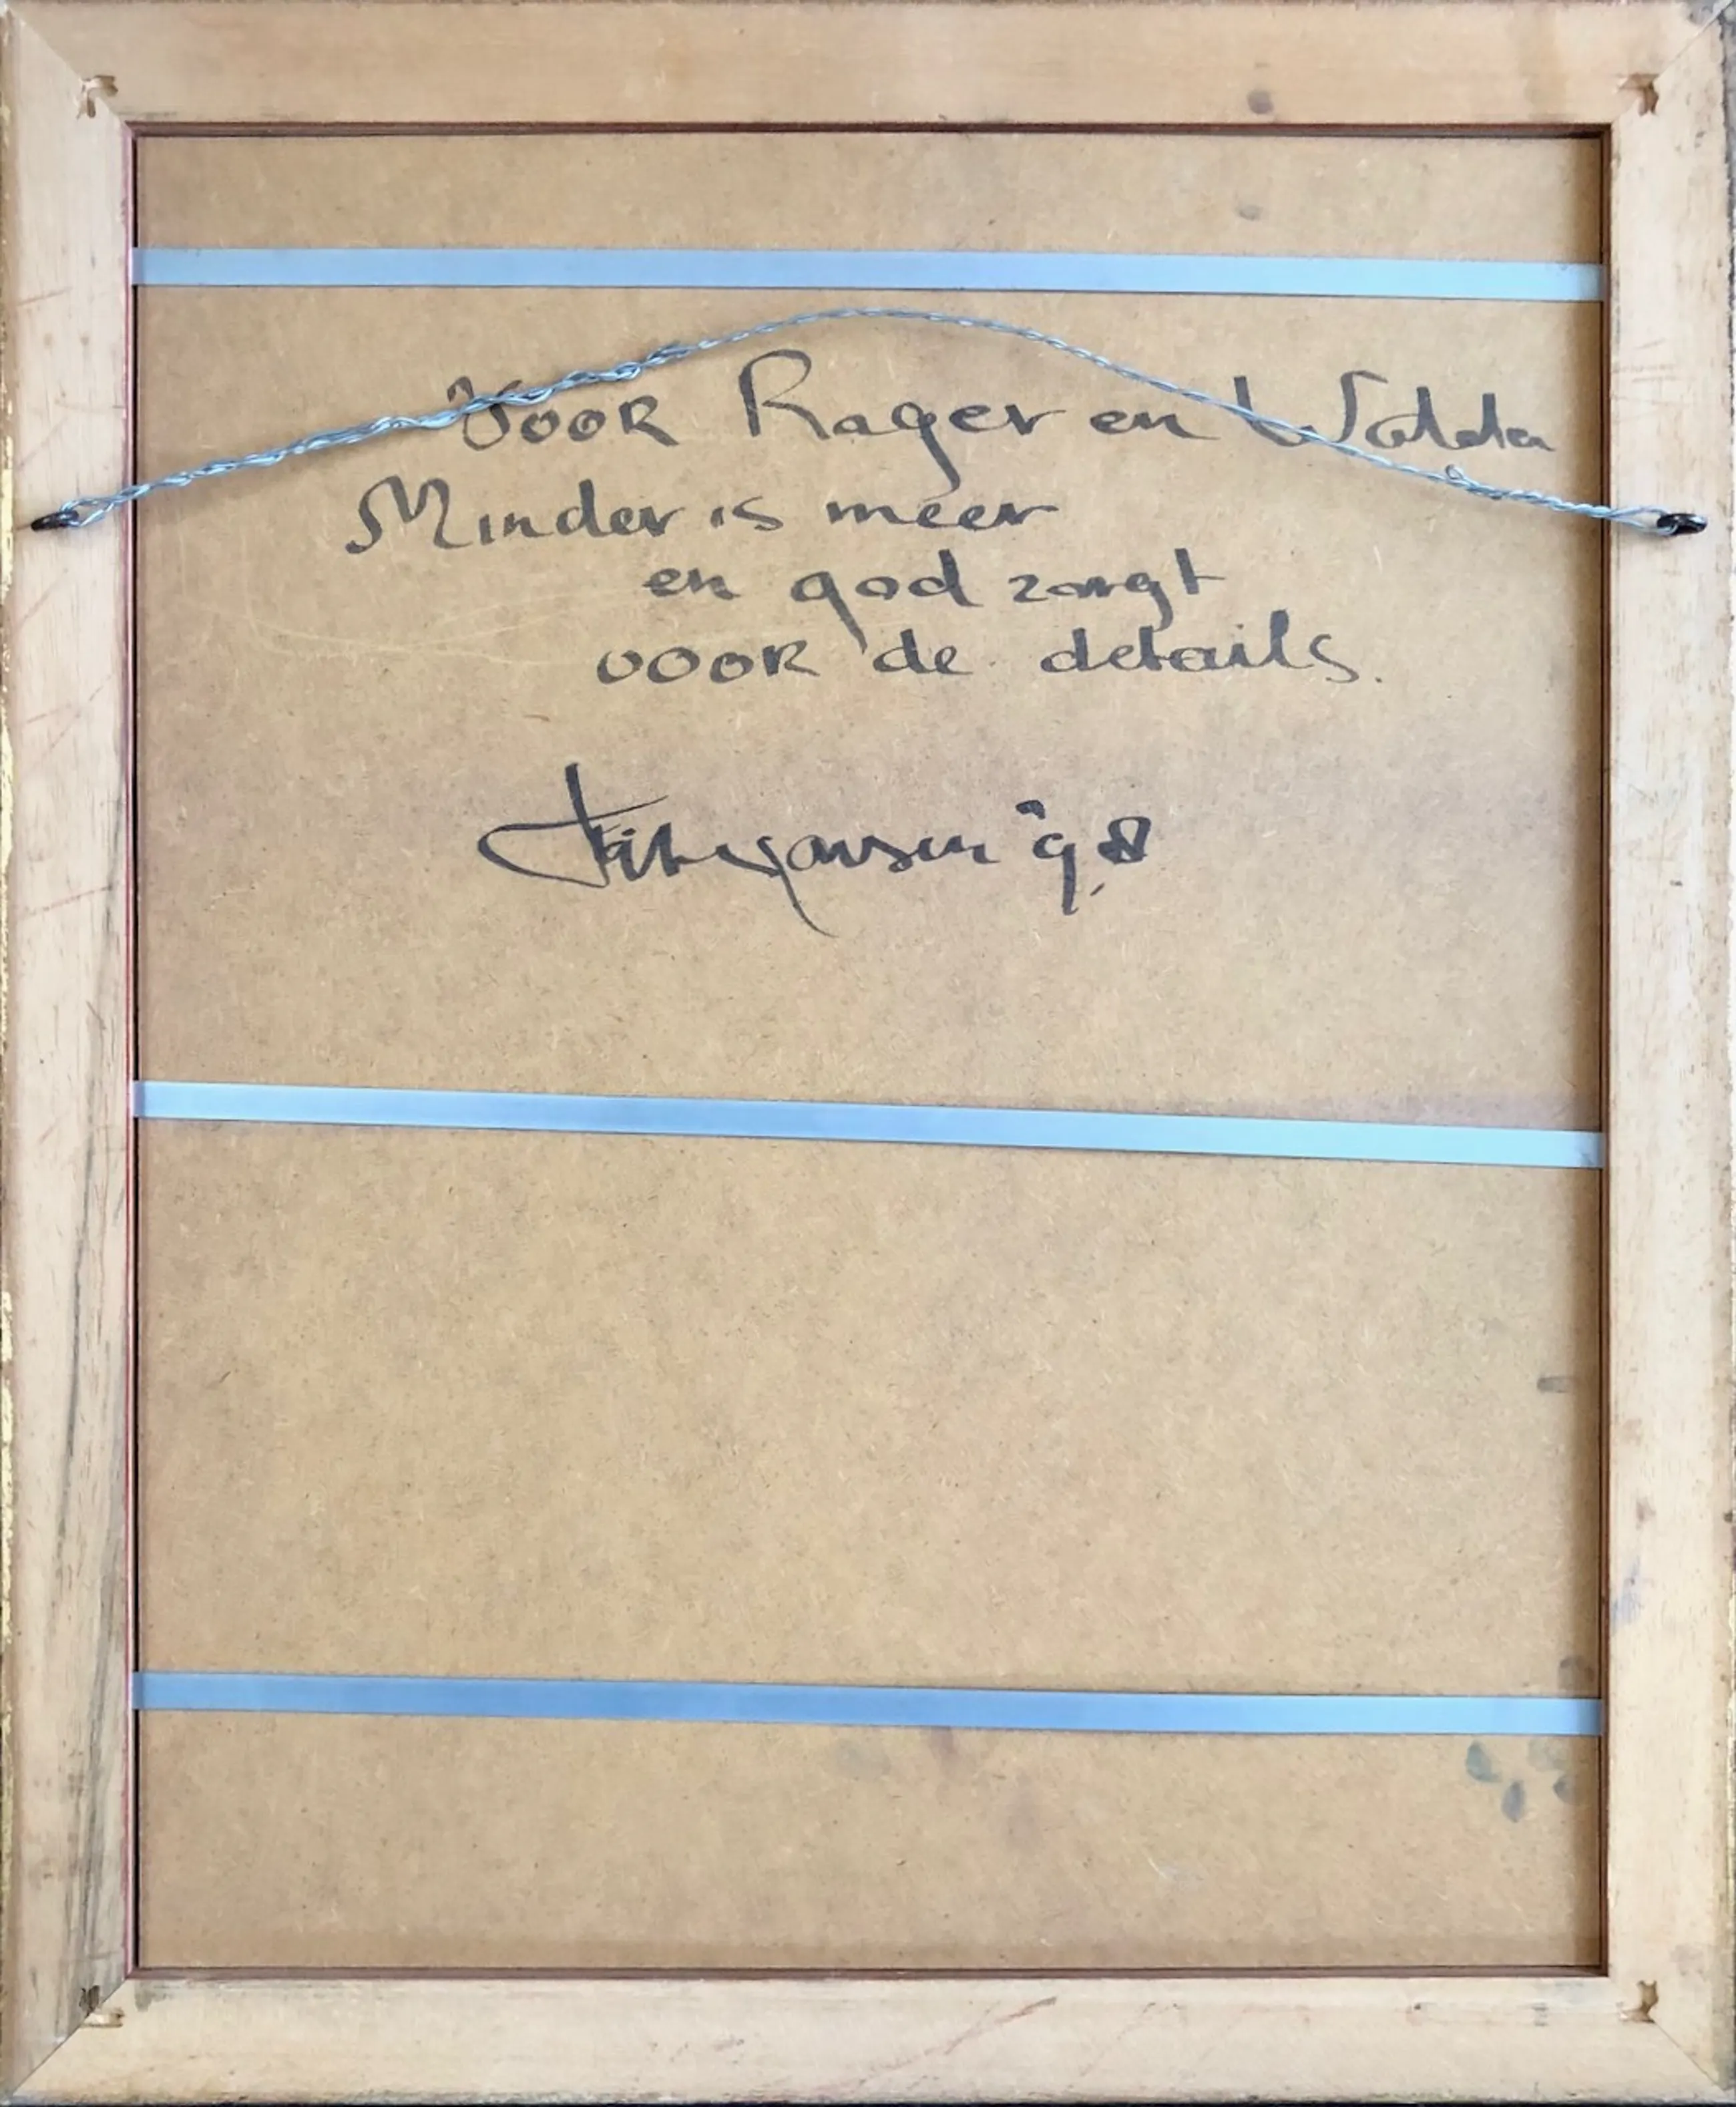 Voor Rager en Wolda
Minder is meer
en god zorgt
voor de details.
'98